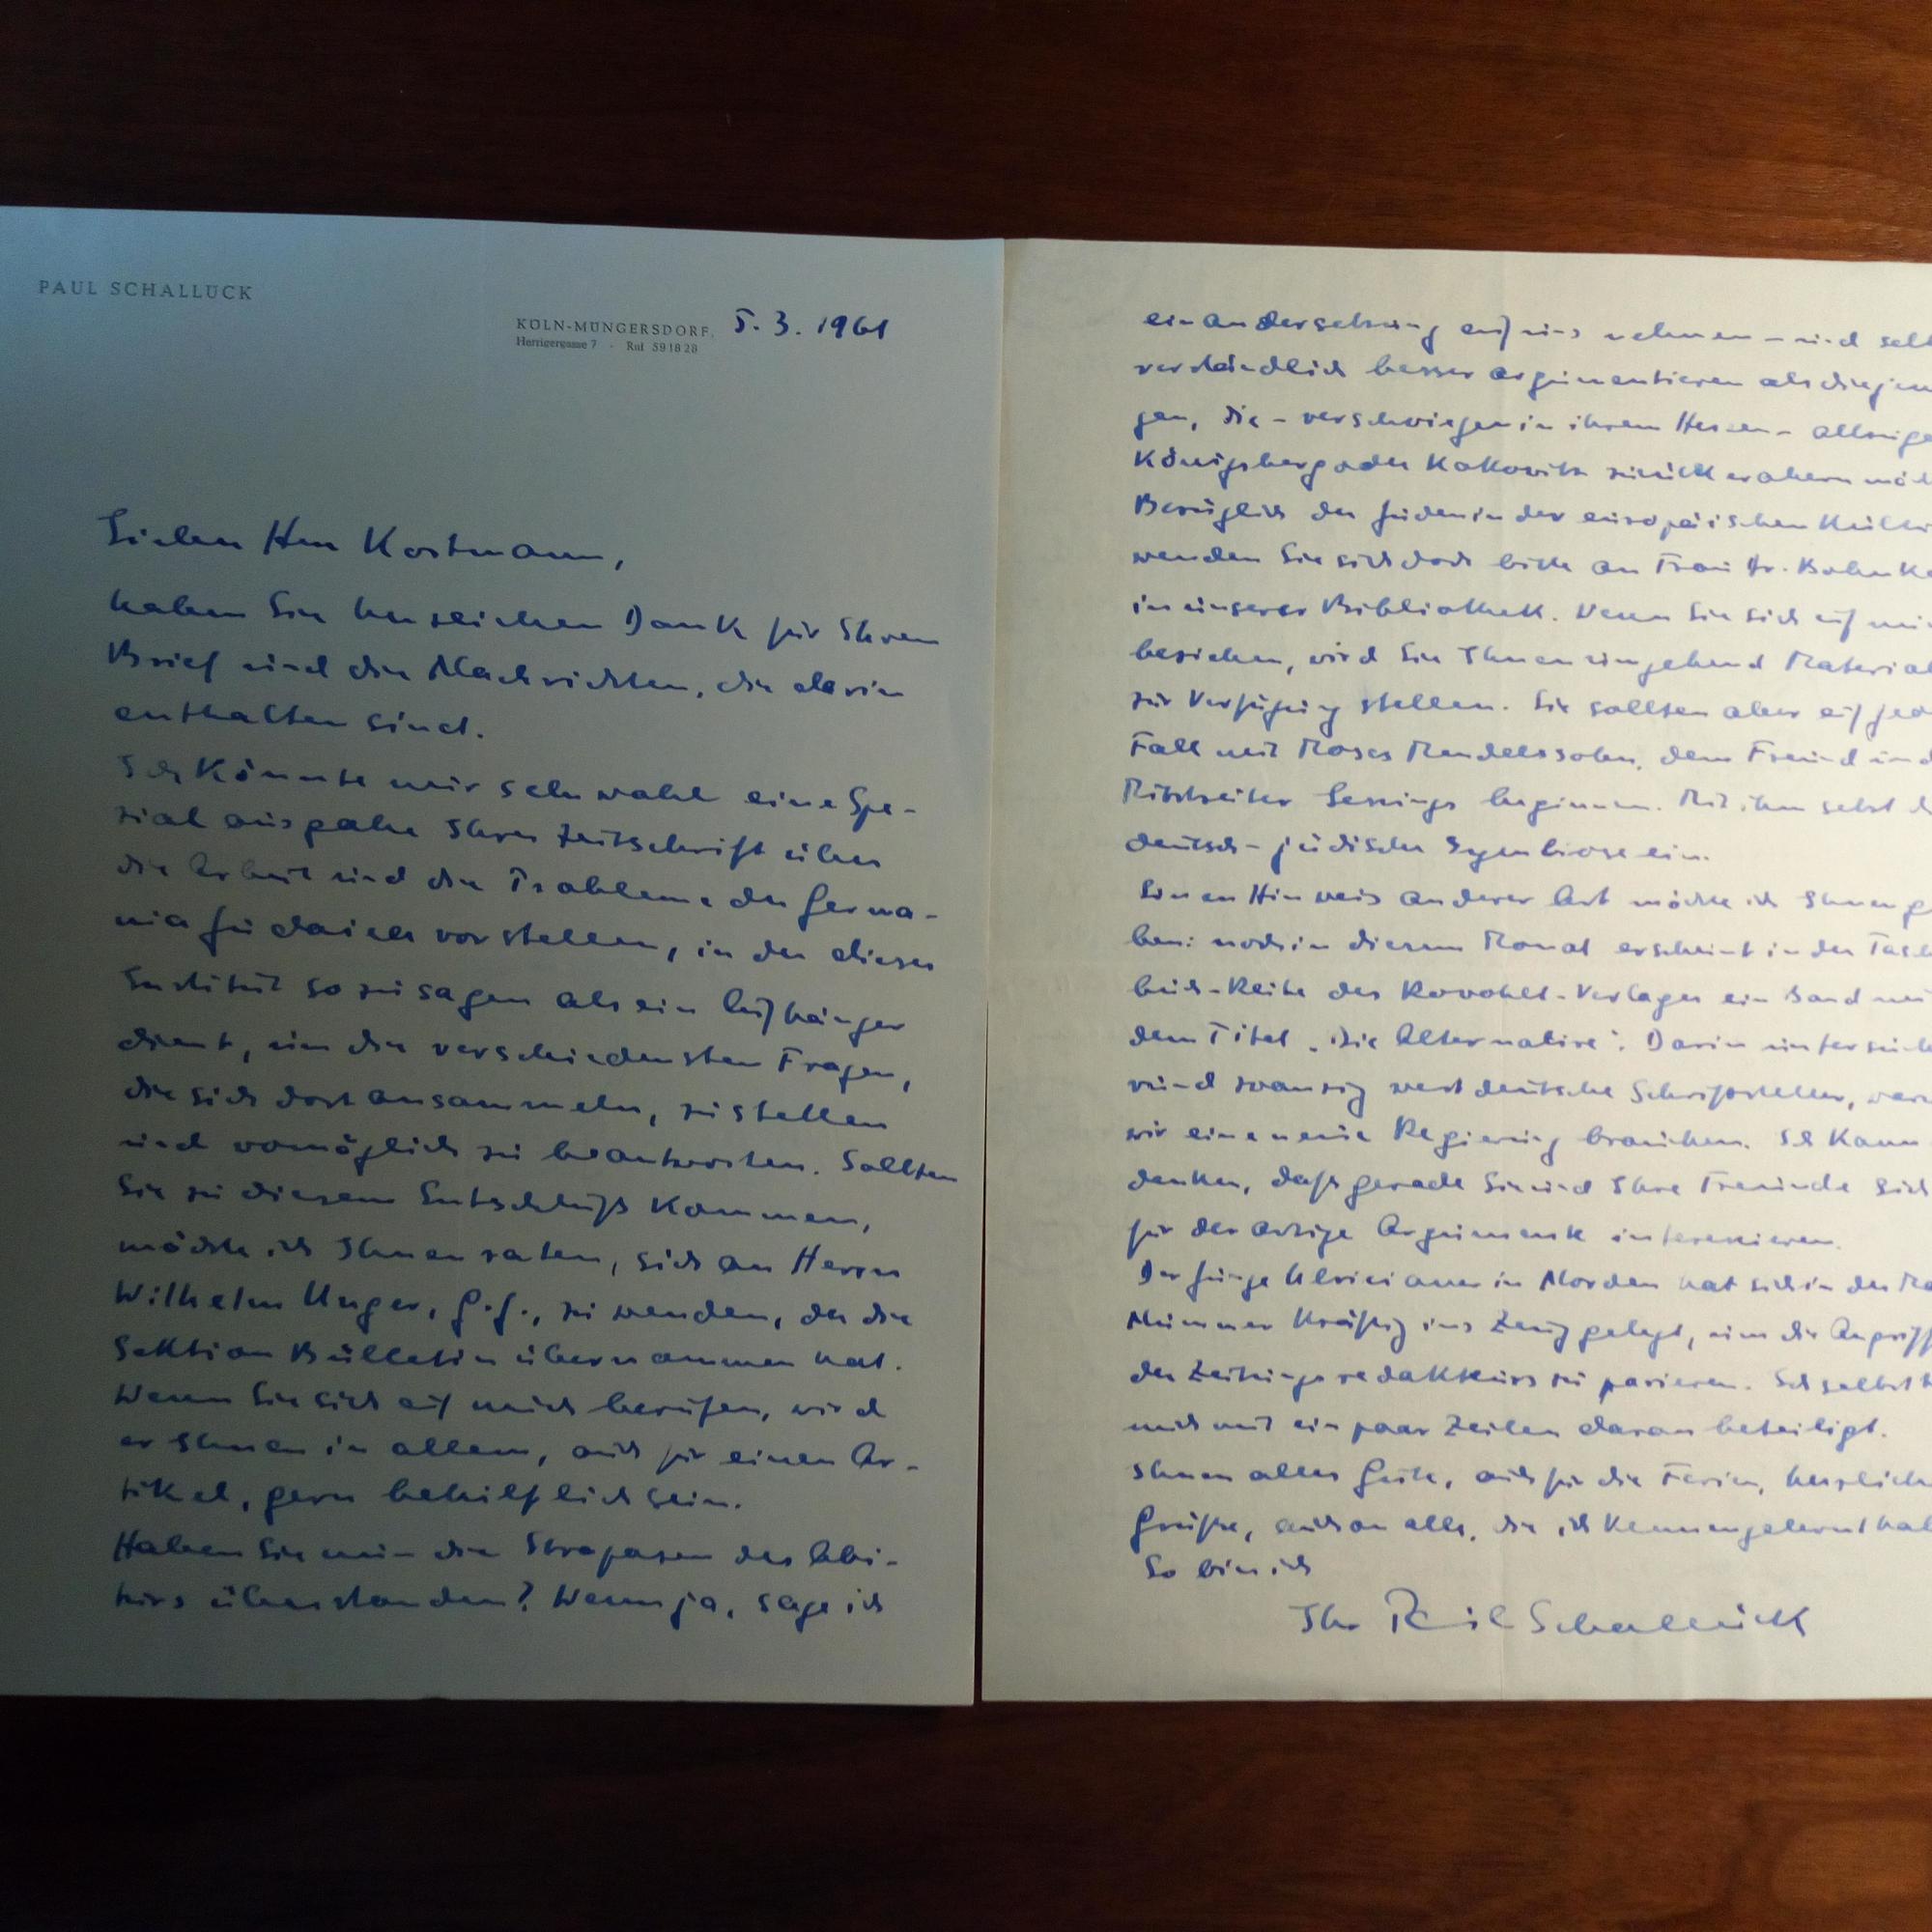 PAUL SCHALLÜCK
KÖLN-MÜNGERSDORF, 5. 3. 1961
Herrigergasse 7 - Ruf 591828
Lieber Herr Kortmann,
haben Sie herzlichen Dank für Ihren
Brief und die Nachrichten, die darin
enthalten sind.
Ich könnte mir sehr wohl eine Spe-
zialausgabe Ihrer Zeitschrift über
die Arbeit und die Probleme der Germa-
nia Judaica vorstellen, in der dieses
Institut sozusagen als ein Aufhänger
dient, um die verschiedensten Fragen,
die sich dort ansammeln, zu stellen
und womöglich zu beantworten. Sollten
Sie zu diesem Entschluß kommen,
möchte ich Ihnen raten, sich an Herrn
Wilhelm Unger, G.J., zu wenden, der die
Sektion Bulletin übernommen hat.
Wenn Sie sich auf mich berufen, wird
er Ihnen in allem, auch für einen Ar-
tikel, gern behilflich sein.
Haben Sie nun die Strapazen des Abi-
turs überstanden? Wenn ja, sage ich
einandersetzung auf uns nehmen - und selb
verständlich besser argumentieren als diejeni
gen, die - verschwiegen in ihrem Herzen -
Königsberg oder Kattowitz zurückerobern möch
Bezüglich der Juden in der europäischen Kultur
wenden Sie sich doch bitte an Frau Dr.
in unserer Bibliothek. Wenn Sie sich auf mich
beziehen, wird Sie Ihnen eingehend Material
zur Verfügung stellen. Sie sollten aber auf jed
Fall mit Moses Mendelssohn, dem Freund und
Mitstreiter Lessings beginnen. Mit ihm setzt d
deutsch-jüdische Symbiose ein.
Einen Hinweis anderer Art möchte ich Ihnen ge
ben: noch in diesem Monat erscheint in der Tasch
buch-Reihe des Rowohlt-Verlages ein Band mi
dem Titel „Die Alternative". Darin untersuche
rund zwanzig westdeutsche Schriftsteller, waru
wir eine neue Regierung brauchen. Ich kann
denken, daß gerade Sie und Ihre Freunde sich
für derartige Argumente interessieren.
Der junge Ulricianer in Norden hat sich in der
Nummer kräftig ins Zeug gelegt, um die Angriff
der Zeitungsredakteurs zu parieren. Ich selbst h
mich mit ein paar Zeilen daran beteiligt.
Ihnen alles Gute, auch für die Ferien, herzliche
Grüße, auch an alle, die ich kennengelernt hab
So bin ich
Ihr Paul Schallück